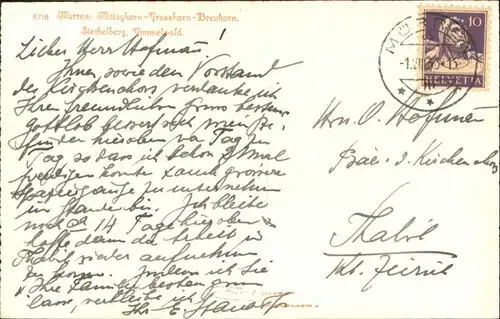 8718 Mürren: Mittaghorn-Grosshorn-Breithorn.
Stechelberg, Gimmelwald.
MÜRREN
10
HELVETIA
Lieber Herr Hofmann!
Ihnen sowie dem Vorstand
des Kirchenchors verdanke ich
Ihren freundlichen Gruss bestens.
Gottlob bessert sich mein Be-
finden hieroben von Tag zu
Tag so dass ich schon 2 mal
predigen konnte & auch grössere
Spaziergänge zu unternehmen
im Stande bin. Ich bleibe
noch 14 Tage hier oben &
hoffe dann die Arbeit in
Thalwil wieder aufnehmen
zu können. Indem ich Sie
& Ihre Familie bestens grüssen
lasse, verbleibe ich
Ihr E.
Hrn. O. Hofmann
Präs. d. Kirchenchors
Thalwil
Kt. Zürich